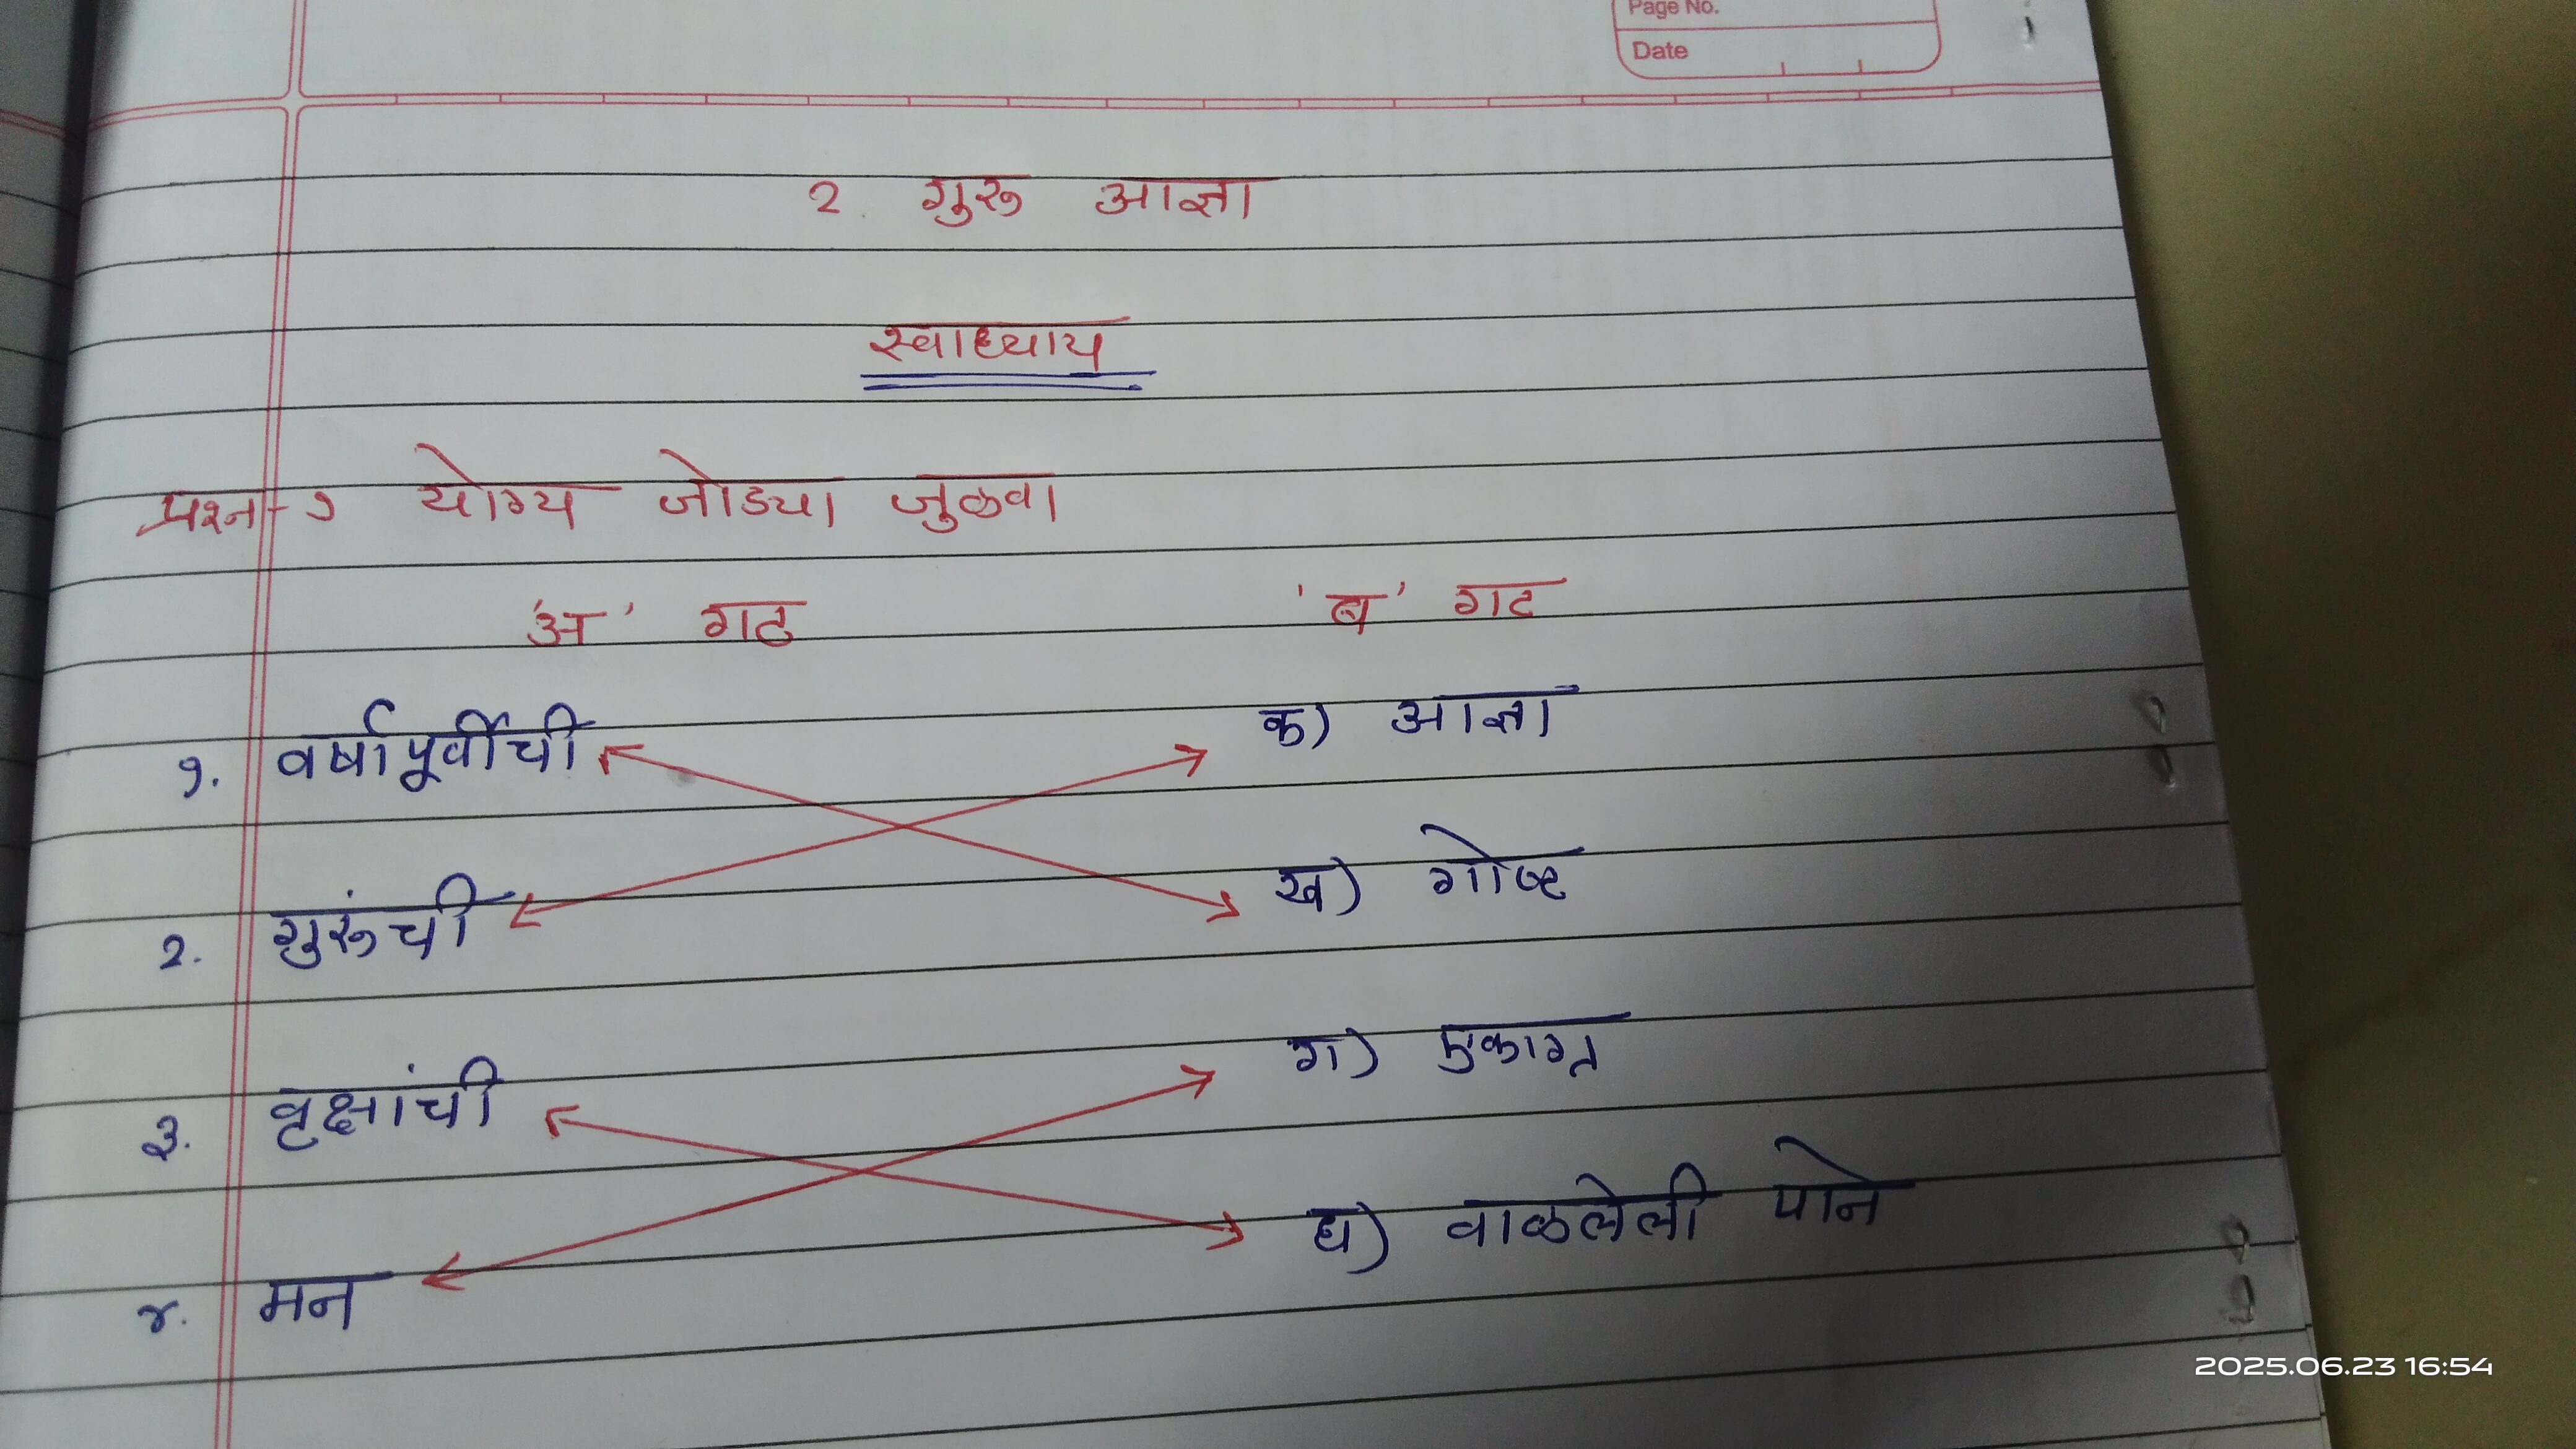 Page No.
Date
२. गुरु आज्ञा
स्वाध्याय
प्रश्न-१ योग्य जोड्या जुळवा
'अ' गट 'ब' गट
१. वर्षापूर्वीची क) आज्ञा
२. गुरुंची ख) गोष्ट
३. वृक्षांची ग) एकाग्र
४. मन घ) वाळलेली पाने
2025.06.23 16:54